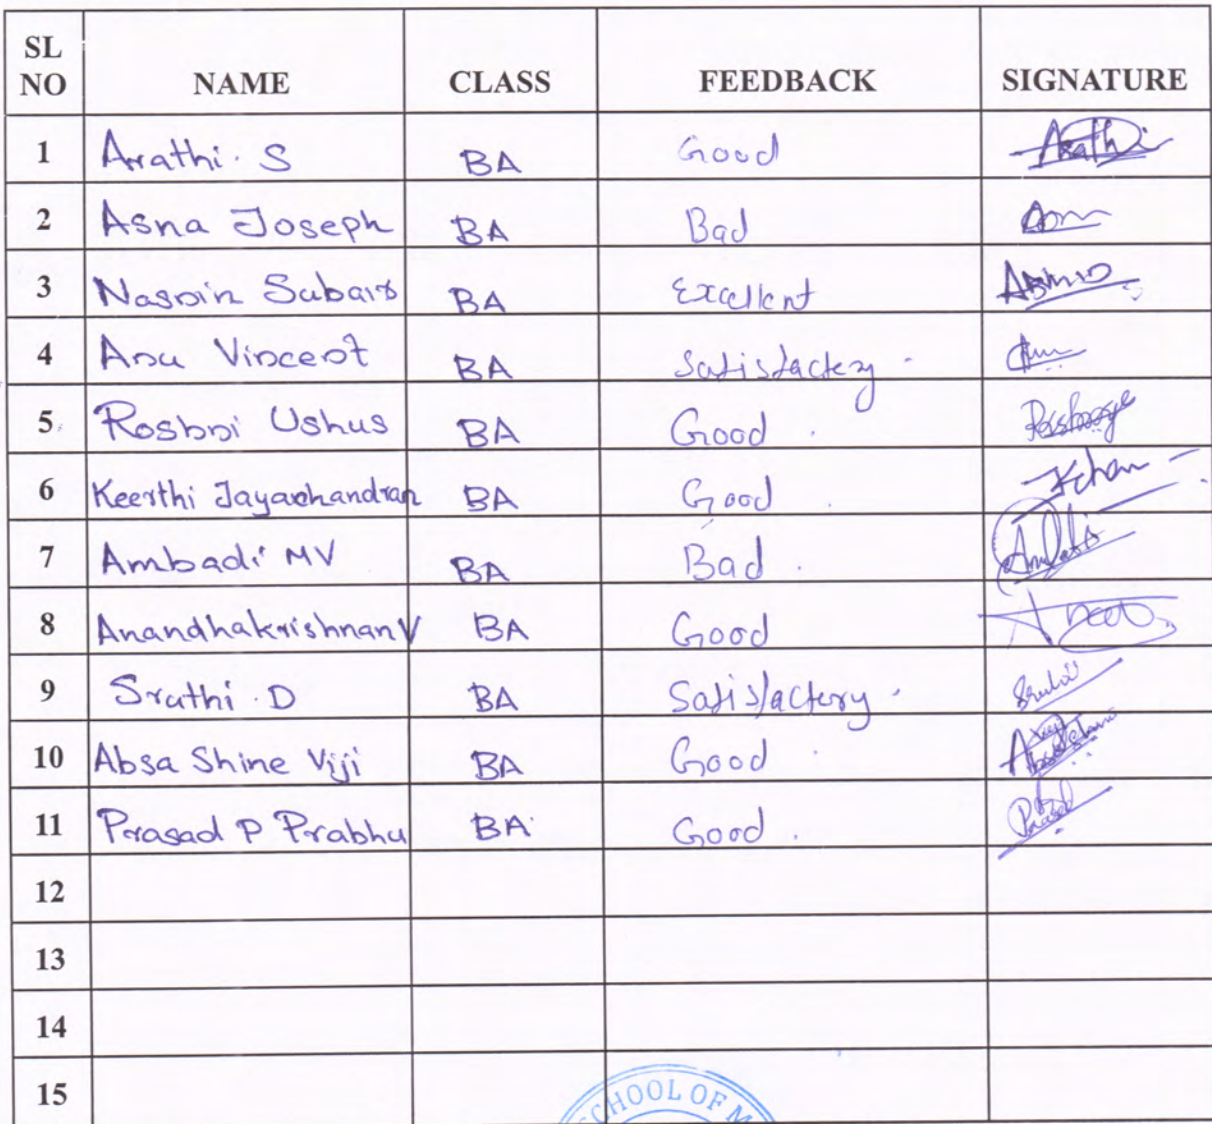 SL NO NAME CLASS FEEDBACK SIGNATURE
1 Arathi. S BA Good Arathi
2 Asna Joseph BA Bad
3 Nasnin Subair BA Excellent
4 Anu Vincent BA Satisfactory
5 Roshni Ushus BA Good
6 Keerthi Jayachandran BA Good
7 Ambadi MV BA Bad Ambadi
8 Anandhakrishnan V BA Good
9 Sruthi D BA Satisfactory
10 Absa Shine Viji BA Good
11 Prasad P Prabhu BA Good Prasad
12
13
14
15
SCHOOL OF M